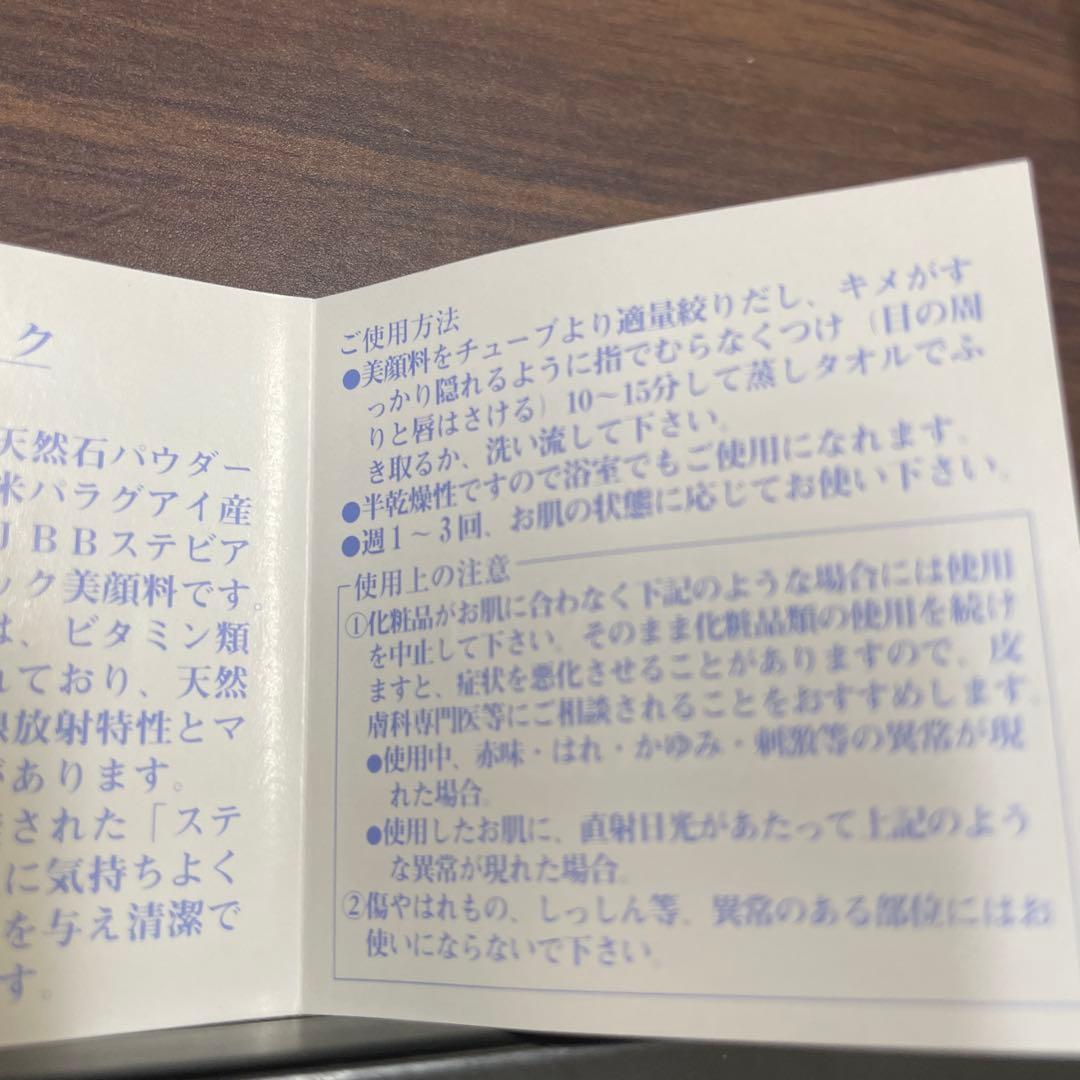 ク
天然石パウダー
米パラグアイ産
BBステビア
ック美顔料です。
は、ビタミン類
れており、天然
線放射特性とマ
があります。
された「ステ
に気持ちよく
を与え清潔で
す。
ご使用方法
●美顔料をチューブより適量絞りだし、キメがす
っかり隠れるように指でむらなくつけ（目の周
りと唇はさける）10〜15分して蒸しタオルでふ
き取るか、洗い流して下さい。
●半乾燥性ですので浴室でもご使用になれます。
●週1〜3回、お肌の状態に応じてお使い下さい。
使用上の注意
①化粧品がお肌に合わなく下記のような場合には使用
を中止して下さい。そのまま化粧品類の使用を続け
ますと、症状を悪化させることがありますので、皮
膚科専門医等にご相談されることをおすすめします。
●使用中、赤味・はれ・かゆみ・刺激等の異常が現
れた場合。
●使用したお肌に、直射日光があたって上記のよう
な異常が現れた場合。
②傷やはれもの、しっしん等、異常のある部位にはお
使いにならないで下さい。